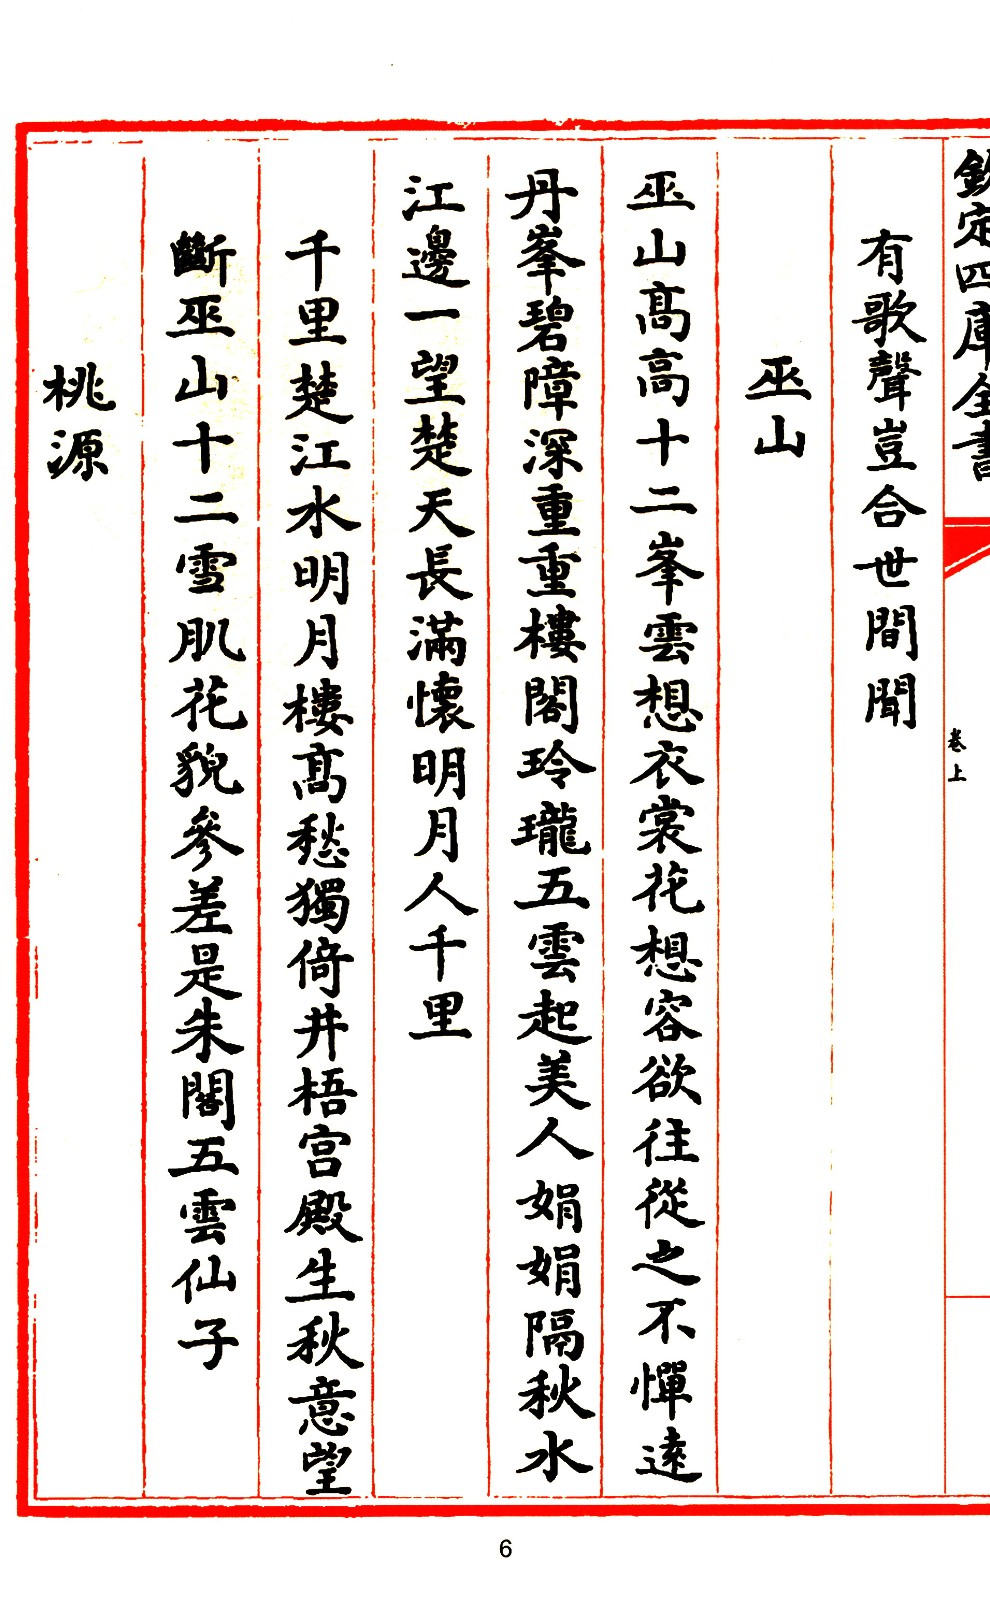 欽定四庫全書
卷上
有歌聲豈合世間聞
巫山
巫山髙高十二峯雲想衣裳花想容欲往從之不憚逺
丹峯碧障深重重樓閣玲瓏五雲起美人娟娟隔秋水
江邊一望楚天長滿懷明月人千里
千里楚江水明月樓髙愁獨倚井梧宫殿生秋意望
斷巫山十二雪肌花貌參差是朱閣五雲仙子
桃源
6